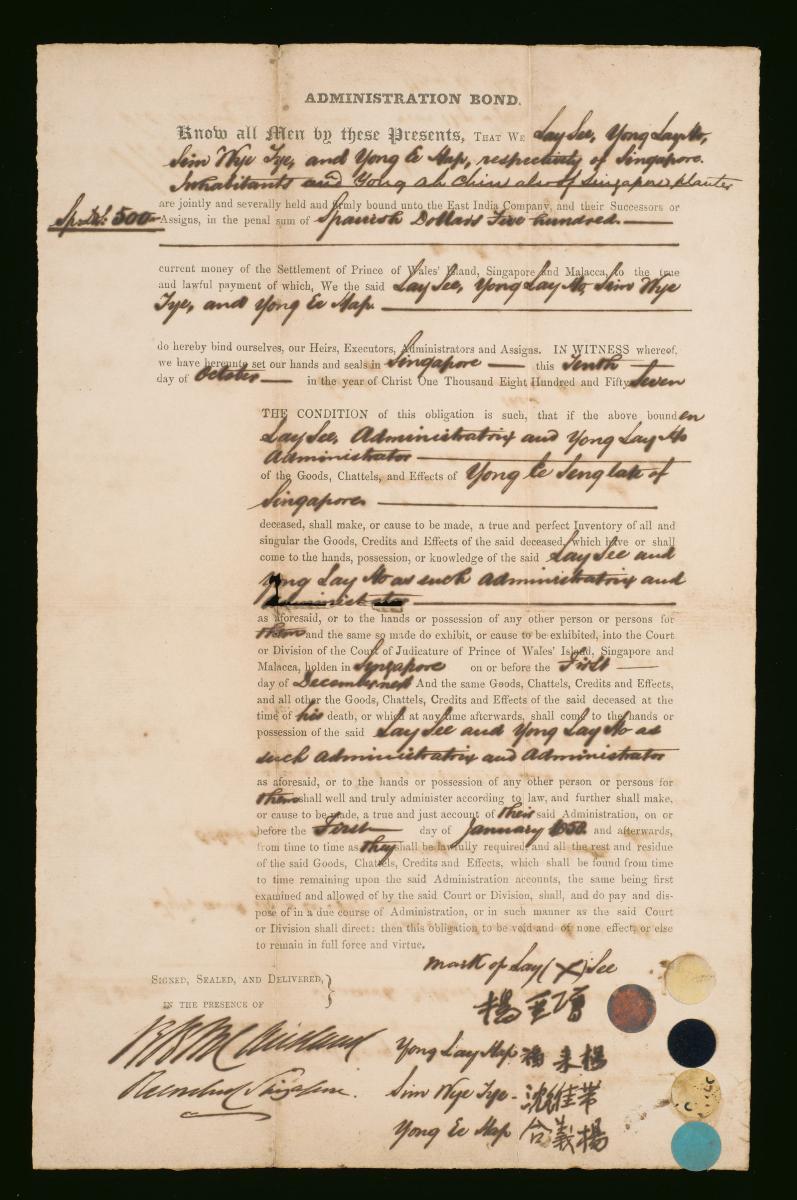 ADMINISTRATION BOND.
Know all Men by these Presents, THAT WE Lay See, Yong Lay Ho,
Sim Wye Tye, and Yong Ee Hap, respectively of Singapore.
Inhabitants and Yong Ah Chin also of Singapore planter
are jointly and severally held and firmly bound unto the East India Company, and their Successors or
Sp. Drs. 500 Assigns, in the penal sum of Spanish Dollars Five hundred.
current money of the Settlement of Prince of Wales' Island, Singapore and Malacca, to the true
and lawful payment of which, We the said Lay See, Yong Lay Ho, Sim Wye
Tye, and Yong Ee Hap.
do hereby bind ourselves, our Heirs, Executors, Administrators and Assigns. IN WITNESS whereof,
we have hereunto set our hands and seals in Singapore this Tenth
day of October in the year of Christ One Thousand Eight Hundred and Fifty Seven
THE CONDITION of this obligation is such, that if the above bounden
Lay See, Administratrix and Yong Lay Ho
Administrator
of the Goods, Chattels, and Effects of Yong Ee Seng late of
Singapore
deceased, shall make, or cause to be made, a true and perfect Inventory of all and
singular the Goods, Credits and Effects of the said deceased, which have or shall
come to the hands, possession, or knowledge of the said Lay See and
Yong Lay Ho as such Administratrix and
Administrator
as aforesaid, or to the hands or possession of any other person or persons for
them and the same so made do exhibit, or cause to be exhibited, into the Court
or Division of the Court of Judicature of Prince of Wales' Island, Singapore and
Malacca, holden in Singapore on or before the First
day of December next And the same Goods, Chattels, Credits and Effects,
and all other the Goods, Chattels, Credits and Effects of the said deceased at the
time of his death, or which at any time afterwards, shall come to the hands or
possession of the said Lay See and Yong Lay Ho as
such Administratrix and Administrator
as aforesaid, or to the hands or possession of any other person or persons for
them shall well and truly administer according to law, and further shall make,
or cause to be made, a true and just account of their said Administration, on or
before the First day of January and afterwards,
from time to time as they shall be lawfully required, and all the rest and residue
of the said Goods, Chattels, Credits and Effects, which shall be found from time
to time remaining upon the said Administration accounts, the same being first
examined and allowed of by the said Court or Division, shall, and do pay and dis-
pose of in a due course of Administration, or in such manner as the said Court
or Division shall direct: then this obligation to be void and of none effect, or else
to remain in full force and virtue.
mark of Lay (X) See
SIGNED, SEALED, AND DELIVERED,
IN THE PRESENCE OF
楊
Yong Lay Hap 楊
Sim Wye Tye - 沈
Yong Ee Hap 合義楊